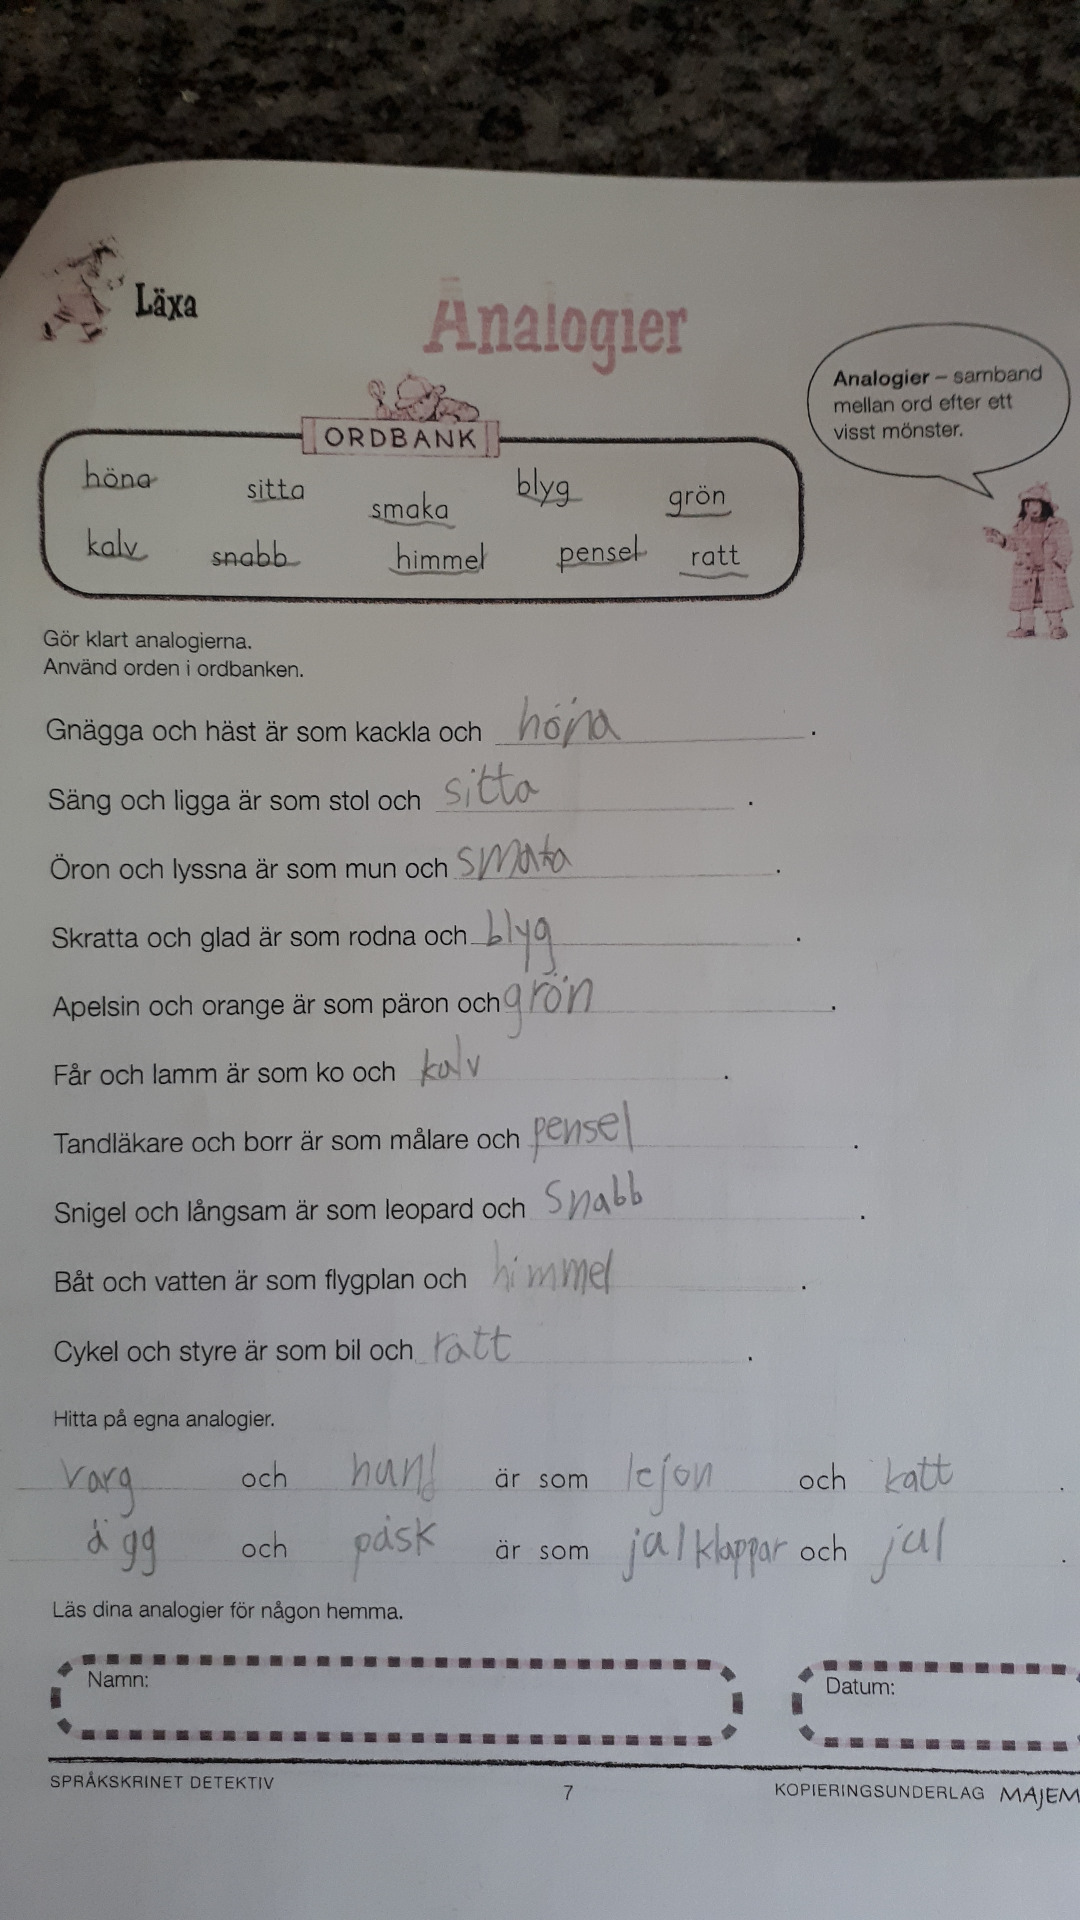 Läxa
Analogier
Analogier – samband
mellan ord efter ett
visst mönster.
ORDBANK
höna sitta smaka blyg grön
kalv snabb himmel pensel ratt
Gör klart analogierna.
Använd orden i ordbanken.
Gnägga och häst är som kackla och höna.
Säng och ligga är som stol och sitta.
Öron och lyssna är som mun och smaka.
Skratta och glad är som rodna och blyg.
Apelsin och orange är som päron och grön.
Får och lamm är som ko och kalv.
Tandläkare och borr är som målare och pensel.
Snigel och långsam är som leopard och Snabb.
Båt och vatten är som flygplan och himmel.
Cykel och styre är som bil och ratt.
Hitta på egna analogier.
varg och hund är som lejon och katt.
ägg och påsk är som julklappar och jul.
Läs dina analogier för någon hemma.
Namn: Datum:
SPRÅKSKRINET DETEKTIV 7 KOPIERINGSUNDERLAG MAJEM